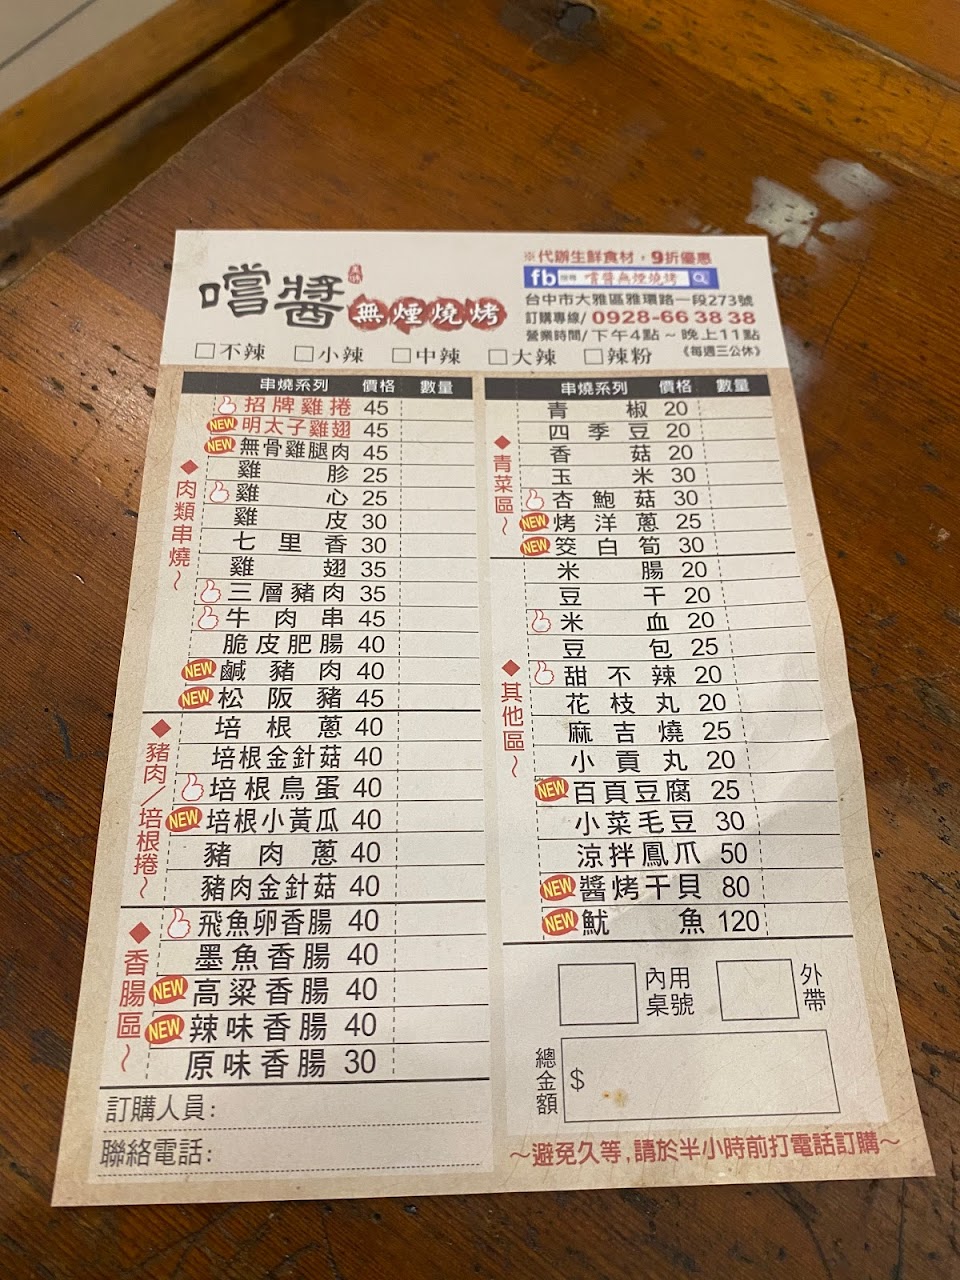 嚐醬
美味
無煙燒烤
※代辦生鮮食材，9折優惠
fb 搜尋 嚐醬無煙燒烤
台中市大雅區雅環路一段273號
訂購專線/ 0928-66 38 38
營業時間/ 下午4點～晚上11點
《每週三公休》
□不辣 □小辣 □中辣 □大辣 □辣粉
串燒系列 價格 數量
◆肉類串燒～
招牌雞捲 45
NEW 明太子雞翅 45
NEW 無骨雞腿肉 45
雞胗 25
雞心 25
雞皮 30
七里香 30
雞翅 35
三層豬肉 35
牛肉串 45
脆皮肥腸 40
NEW 鹹豬肉 40
NEW 松阪豬 45
◆豬肉/培根捲～
培根蔥 40
培根金針菇 40
培根鳥蛋 40
NEW 培根小黃瓜 40
豬肉蔥 40
豬肉金針菇 40
◆香腸區～
飛魚卵香腸 40
墨魚香腸 40
NEW 高粱香腸 40
NEW 辣味香腸 40
原味香腸 30
訂購人員:
聯絡電話:
串燒系列 價格 數量
◆青菜區～
青椒 20
四季豆 20
香菇 20
玉米 30
杏鮑菇 30
NEW 烤洋蔥 25
NEW 筊白筍 30
◆其他區～
米腸 20
豆干 20
米血 20
豆包 25
甜不辣 20
花枝丸 20
麻吉燒 25
小貢丸 20
NEW 百頁豆腐 25
小菜毛豆 30
涼拌鳳爪 50
NEW 醬烤干貝 80
NEW 魷魚 120
內用桌號
外帶
總金額 $
～避免久等,請於半小時前打電話訂購～